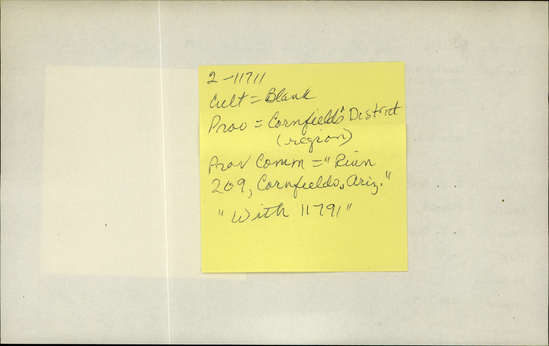 2-11711
Cult = Blank
Prov = Cornfields District
(region)
Prov Comm = "Ruin
209, Cornfields, Ariz."
"With 11791"